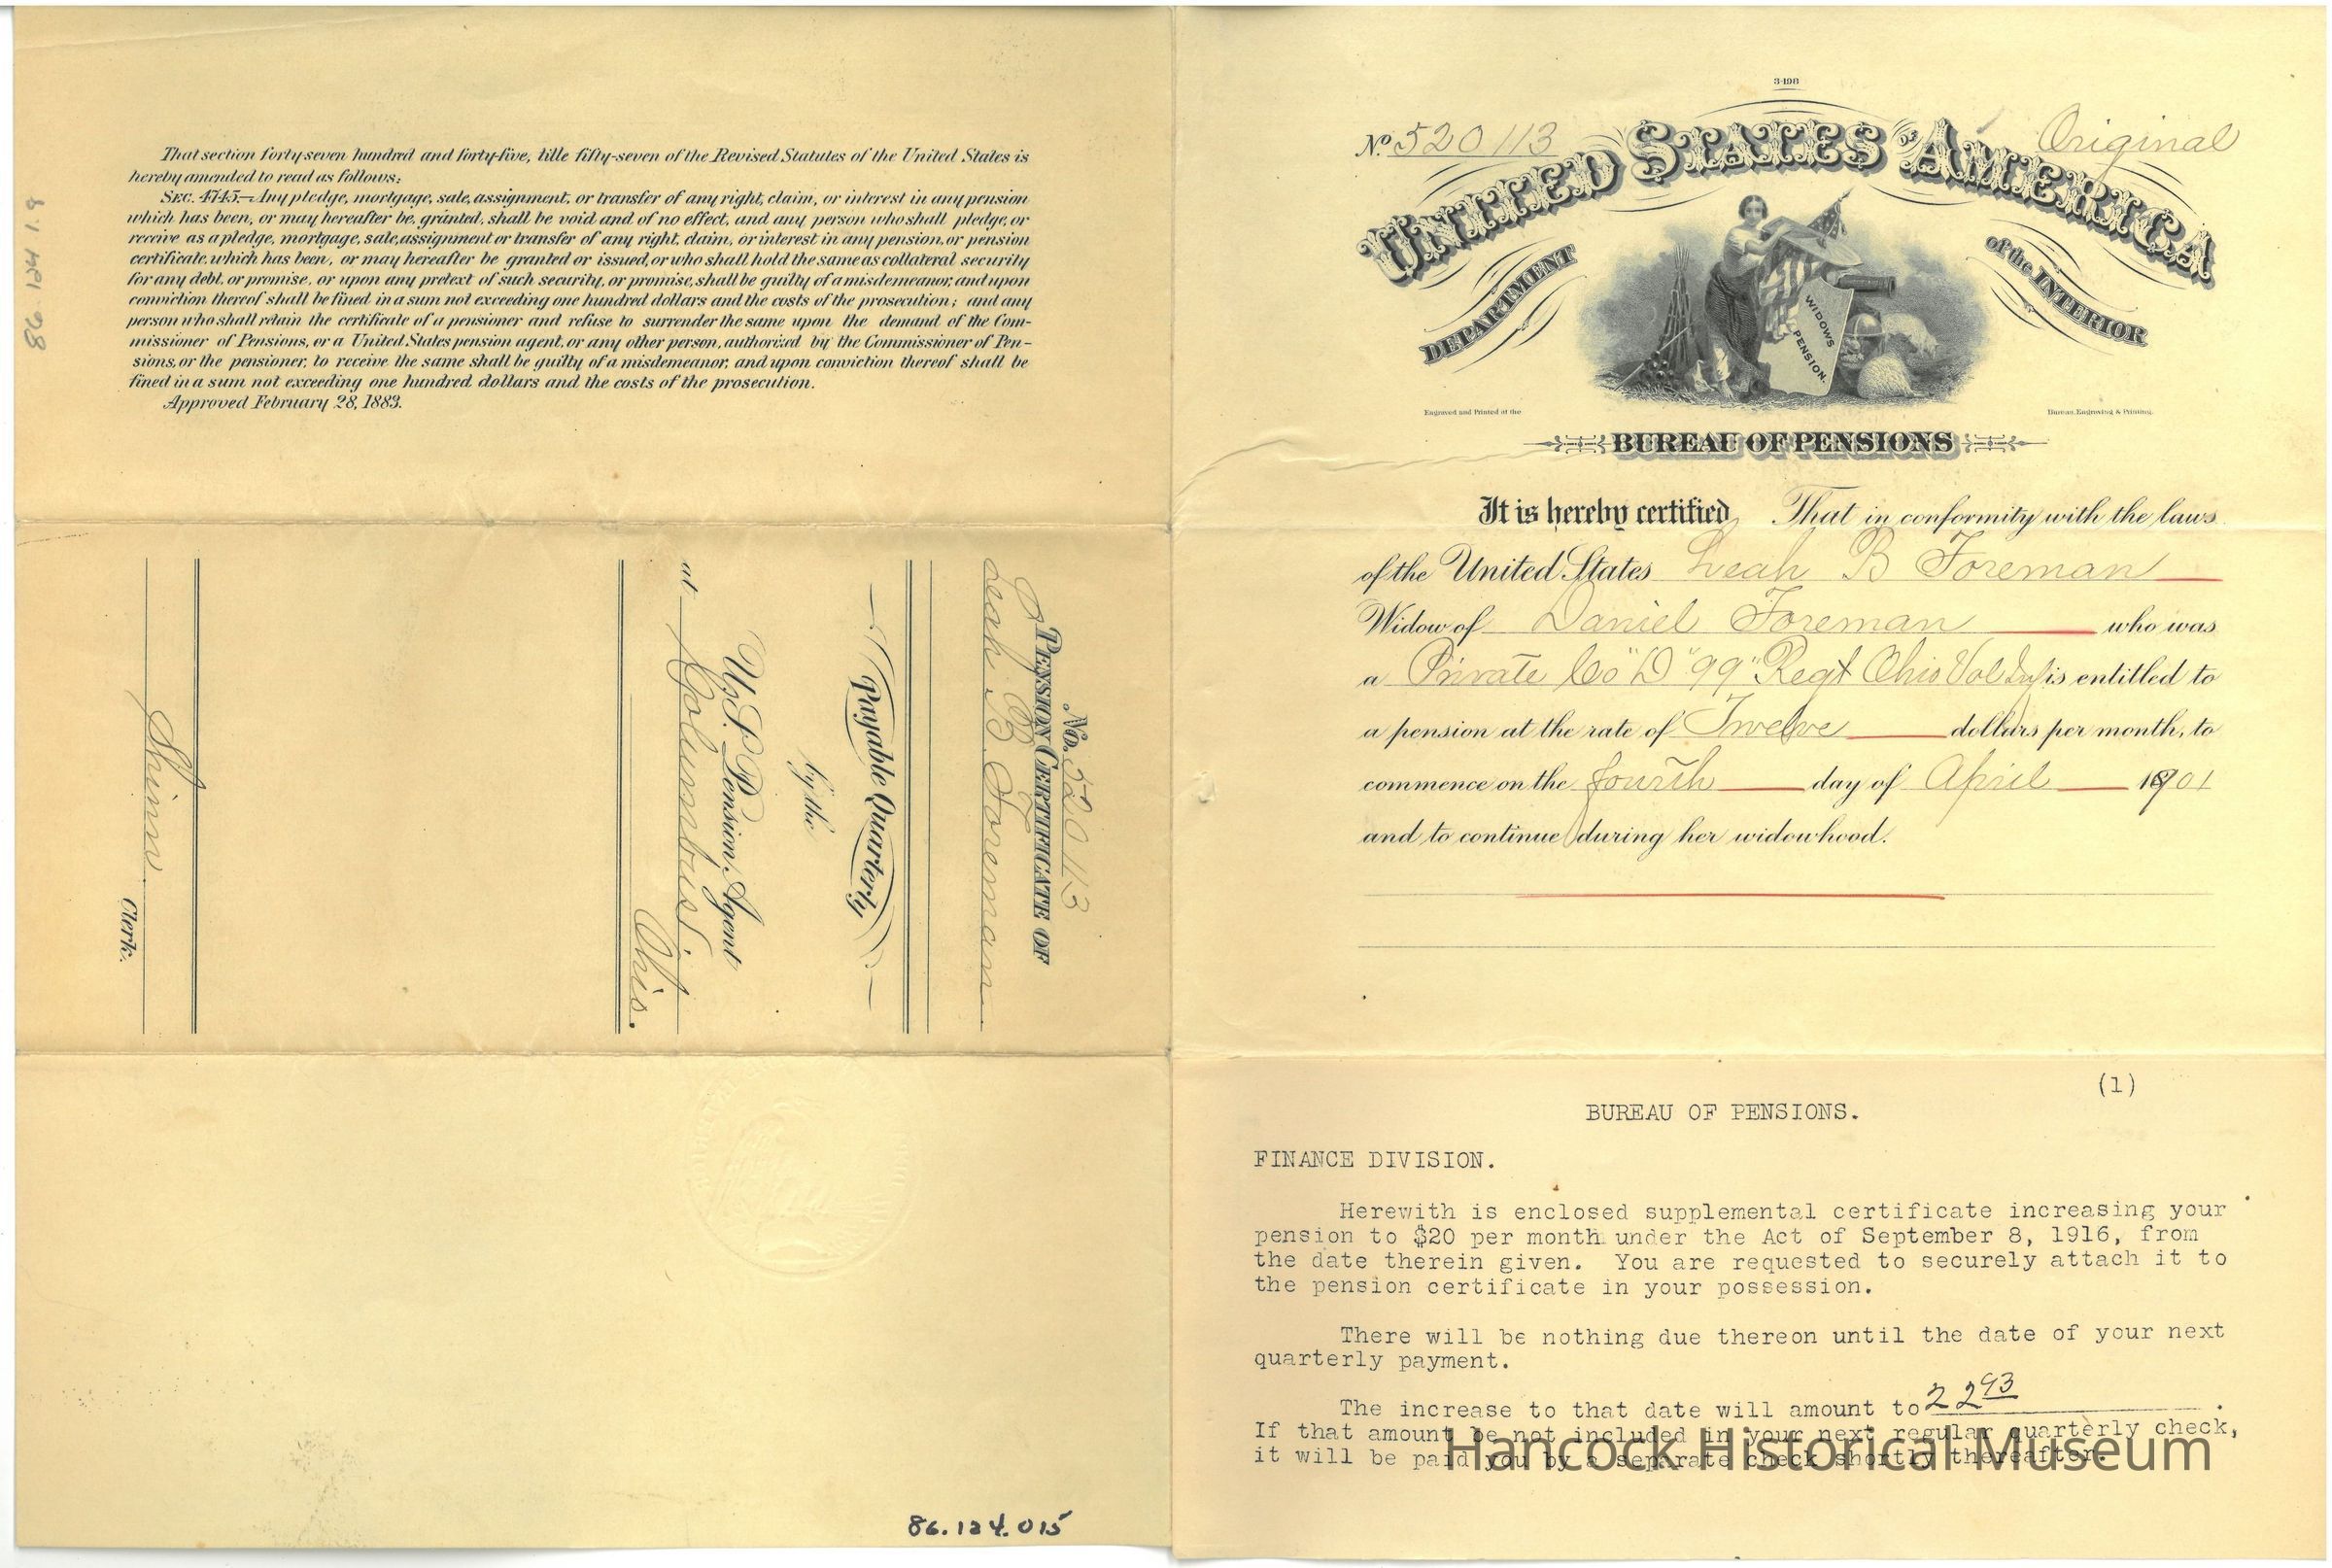 That section forty-seven hundred and forty-five, title fifty-seven of the Revised Statutes of the United States is
hereby amended to read as follows:
SEC. 4745.—Any pledge, mortgage, sale, assignment, or transfer of any right, claim, or interest in any pension
which has been, or may hereafter be, granted, shall be void and of no effect, and any person who shall pledge, or
receive as a pledge, mortgage, sale, assignment or transfer of any right, claim, or interest in any pension, or pension
certificate, which has been, or may hereafter be granted or issued, or who shall hold the same as collateral security
for any debt, or promise, or upon any pretext of such security, or promise, shall be guilty of a misdemeanor, and upon
conviction thereof shall be fined in a sum not exceeding one hundred dollars and the costs of the prosecution; and any
person who shall retain the certificate of a pensioner and refuse to surrender the same upon the demand of the Com-
missioner of Pensions, or a United States pension agent, or any other person, authorized by the Commissioner of Pen-
sions, or the pensioner, to receive the same shall be guilty of a misdemeanor, and upon conviction thereof shall be
fined in a sum not exceeding one hundred dollars and the costs of the prosecution.
Approved February 28, 1883.
86.124.1.9
No. 520113
PENSION CERTIFICATE OF
Leah B Foreman
Payable Quarterly
by the
U.S. Pension Agent
at Columbus,
Ohio.
Shinn
Clerk.
86.124.015
3-198
No. 520113
Original
UNITED STATES OF AMERICA
DEPARTMENT of the INTERIOR
WIDOWS
PENSION.
Engraved and Printed at the
Bureau, Engraving & Printing.
BUREAU OF PENSIONS
It is hereby certified That in conformity with the laws
of the United States Leah B Foreman
Widow of Daniel Foreman who was
a Private Co "D" "99" Regt Ohio Vol Inf is entitled to
a pension at the rate of Twelve dollars per month, to
commence on the fourth day of April 1901
and to continue during her widowhood.
(1)
BUREAU OF PENSIONS.
FINANCE DIVISION.
Herewith is enclosed supplemental certificate increasing your
pension to $20 per month under the Act of September 8, 1916, from
the date therein given. You are requested to securely attach it to
the pension certificate in your possession.
There will be nothing due thereon until the date of your next
quarterly payment.
The increase to that date will amount to 22 93.
If that amount be not included in your next regular quarterly check,
it will be paid you by a separate check shortly thereafter.
Hancock Historical Museum